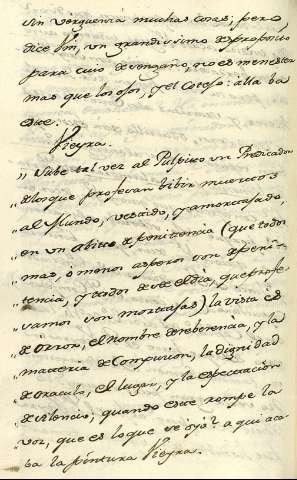 sin verguenza muchas cosas; pero
dice Vm, un grandissimo desproposito
para cuio desengaño, no es menester
mas que los ojos, y el Cotejo: alla ba
este.
Vieyra.
„ Sube tal vez al Pulpito un Predicador
„ de los que profesan bibir muertos
„ al Mundo, vestido, y amortajado,
„ en un abito de penitencia (que todos
„ mas, ó menos asperos son de peni-
„ tencia, y todos desde el dia, que profe-
„ samos son mortajas) la vista es
„ de orror, el nombre de reberencia, y la
„ materia de Compuncion, la dignidad
„ de oraculo, el lugar, y la espectacion
„ de silencio; quando este rompe la
„ voz, que es lo que se oye? a qui aca-
ba la pintura Vieyra.